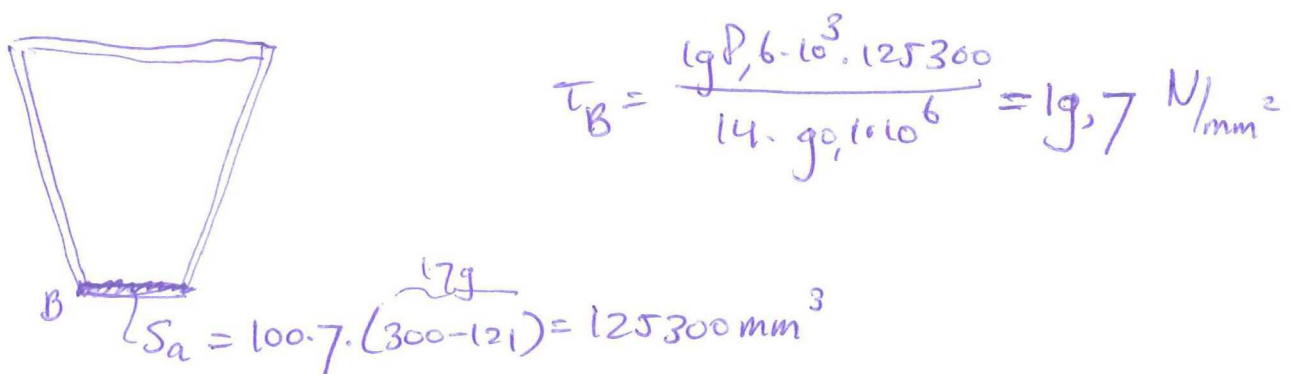 τ_B = (198,6·10³·125300)/(14·90,1·10⁶) = 19,7 N/mm²
179
B
S_a = 100·7·(300-121) = 125300 mm³